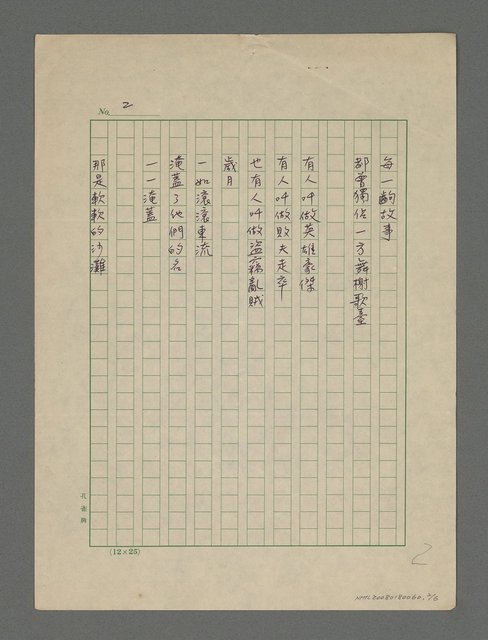 No. 2
每一齣故事
都曾獨佔一方舞榭歌臺
有人叫做英雄豪傑
有人叫做敗夫走卒
也有人叫做盜竊亂賊
歲月
一如滾滾東流
淹蓋了他們的名
一一淹蓋
那是軟軟的沙灘
孔雀牌
(12×25)
2
NMTL20080180060, 2/5